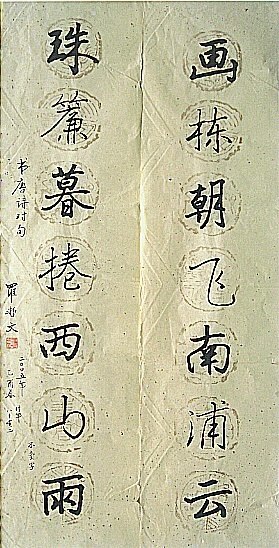 画栋朝飞南浦云
珠簾暮捲西山雨
书唐诗对句
罗哲文
二〇〇五年
乙酉春